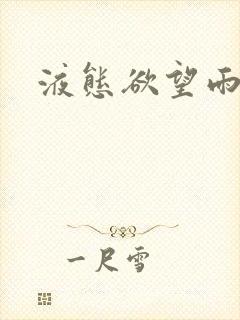 液態欲望雨
一尺雪